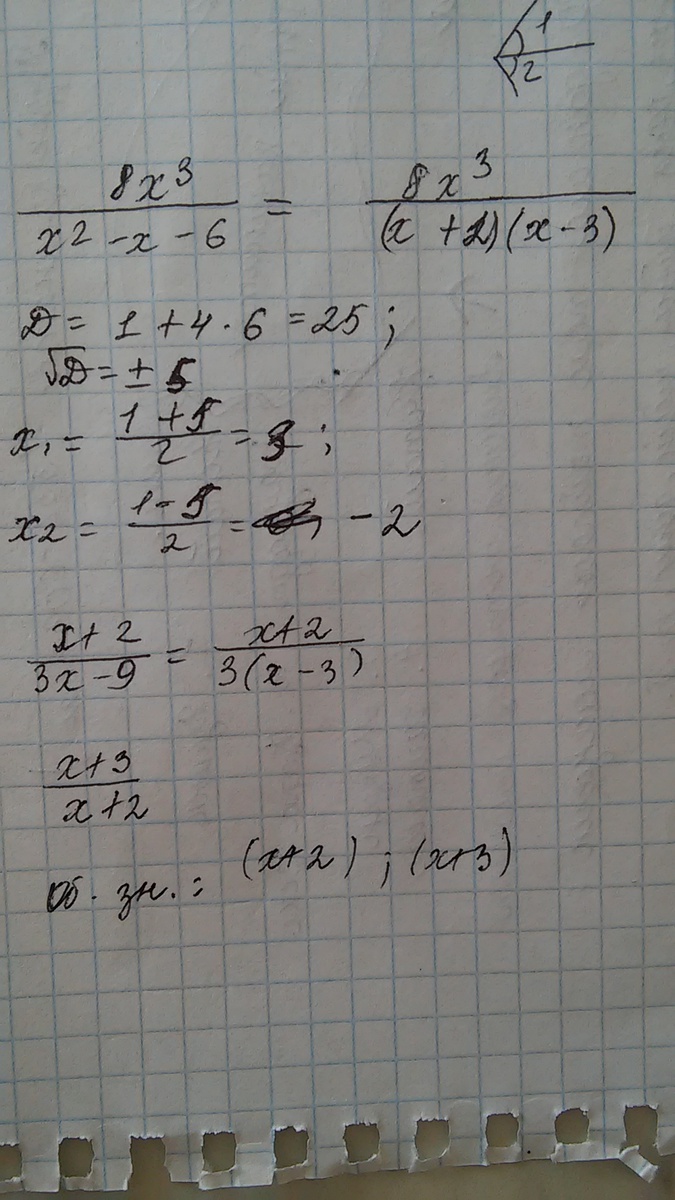 1
2
8x³/(x² - x - 6) = 8x³/((x + 2)(x - 3))
D = 1 + 4 · 6 = 25;
√D = ± 5
x₁ = (1 + 5)/2 = 3;
x₂ = (1 - 5)/2 = - 2
(x + 2)/(3x - 9) = (x + 2)/(3(x - 3))
(x + 3)/(x + 2)
об. зн.: (x+2) ; (x+3)